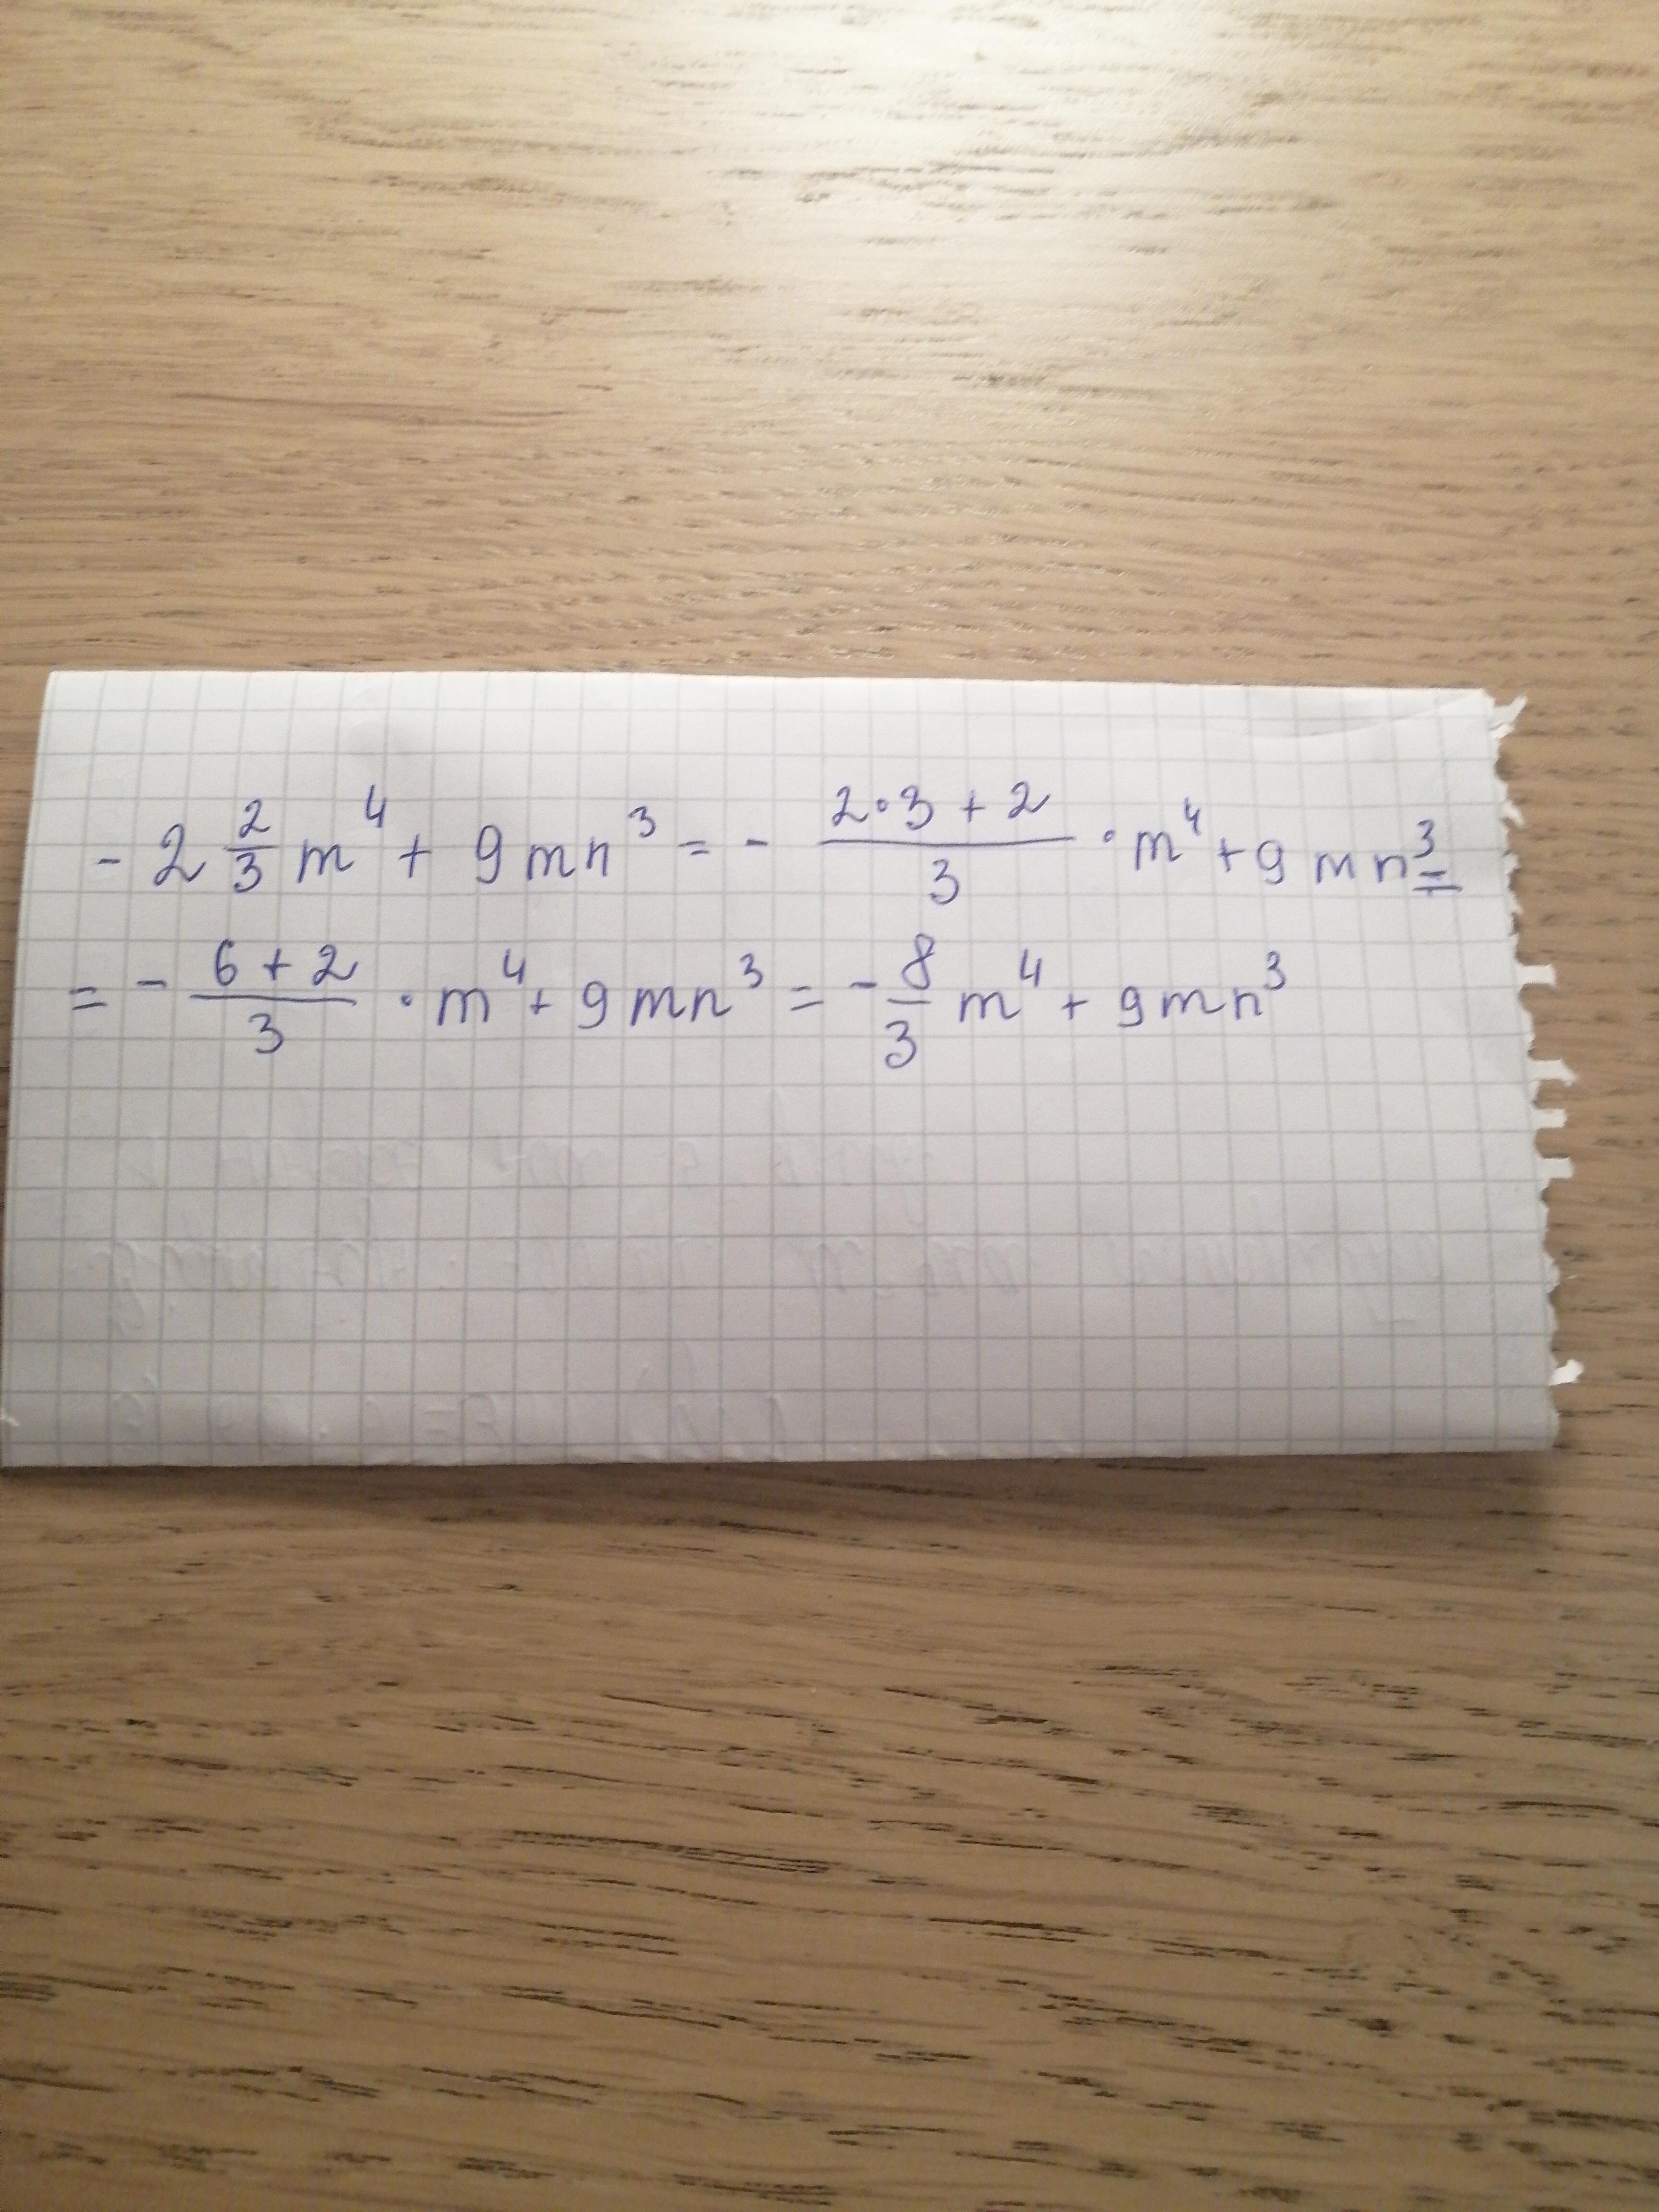 - 2 2/3 m⁴ + 9mn³ = - (2·3+2)/3 · m⁴ + 9mn³ =
= - (6+2)/3 · m⁴ + 9mn³ = - 8/3 m⁴ + 9mn³